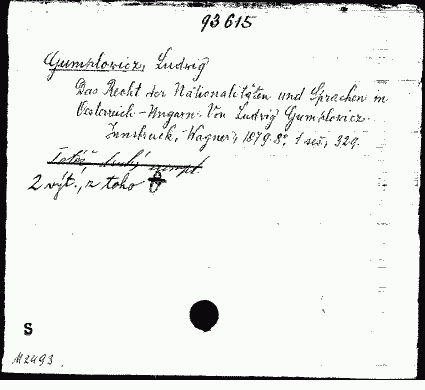 93615
Gumplowicz, Ludwig
Das Recht der Nationalitäten und Sprachen in
Oesterreich-Ungarn. Von Ludwig Gumplowicz.
Innsbruck, Wagner, 1879. 8°, 1 seš., 329.
Totéž druhý exempl.
2 výt., z toho
S
M2493